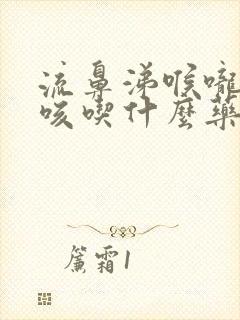 流鼻涕喉嚨
咳喫什麼藥
簾霜1